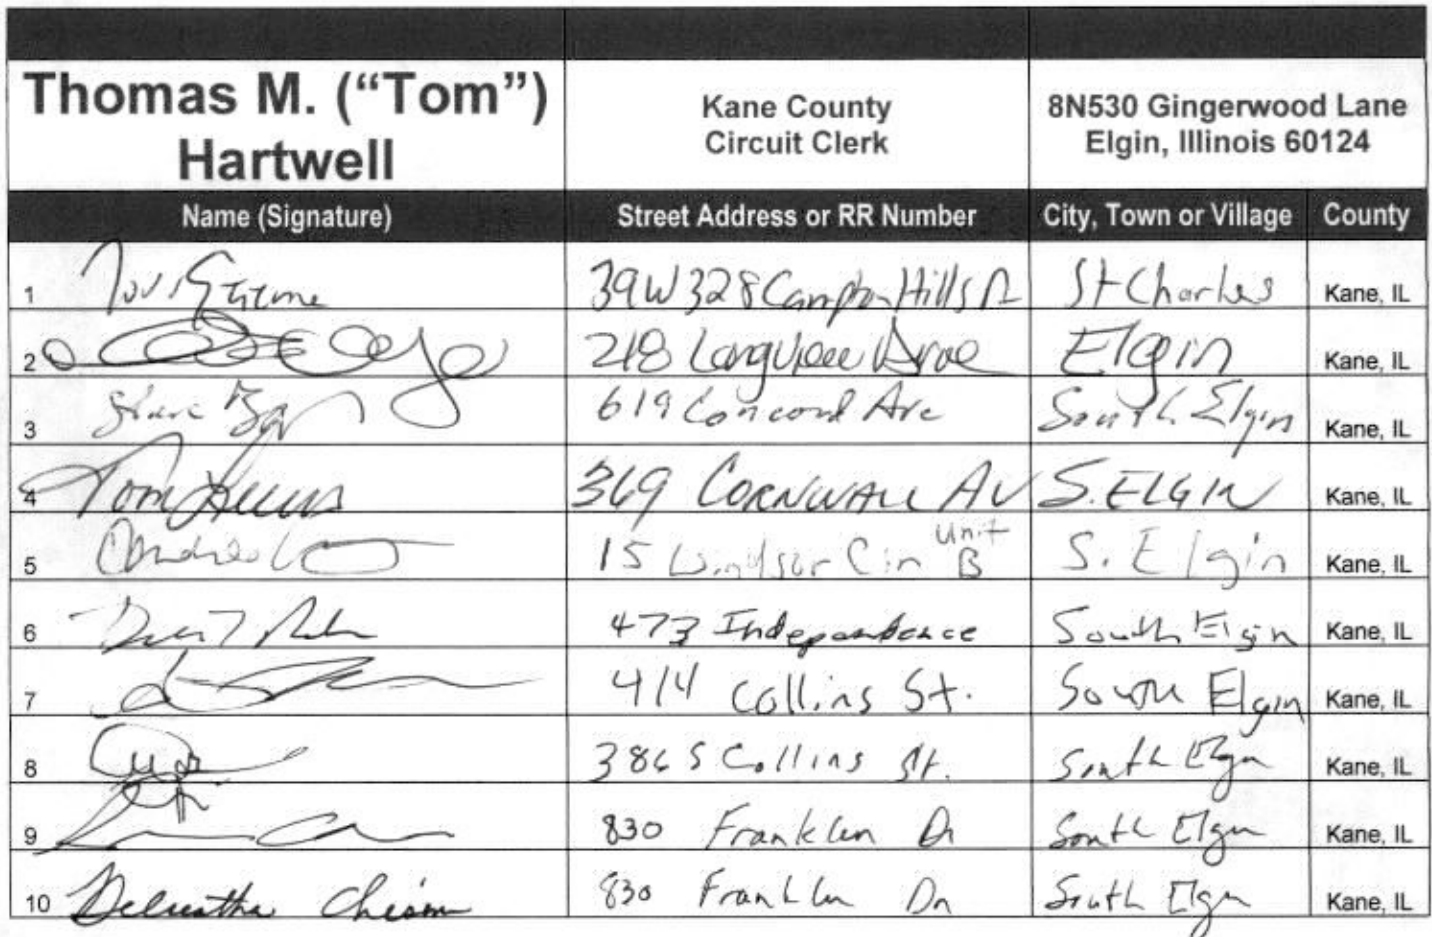 Thomas M. ("Tom") Hartwell
Kane County Circuit Clerk
8N530 Gingerwood Lane Elgin, Illinois 60124
Name (Signature) Street Address or RR Number City, Town or Village County
1 39W328 Campton Hills St Charles Kane, IL
2 218 Longview Elgin Kane, IL
3 619 Concord Ave South Elgin Kane, IL
4 Tom 369 CORNWALL AV S. ELGIN Kane, IL
5 15 Windsor Cir Unit B S. Elgin Kane, IL
6 473 Independence South Elgin Kane, IL
7 414 Collins St. South Elgin Kane, IL
8 386 S Collins St. South Elgin Kane, IL
9 830 Franklin Dr South Elgin Kane, IL
10 830 Franklin Dr South Elgin Kane, IL